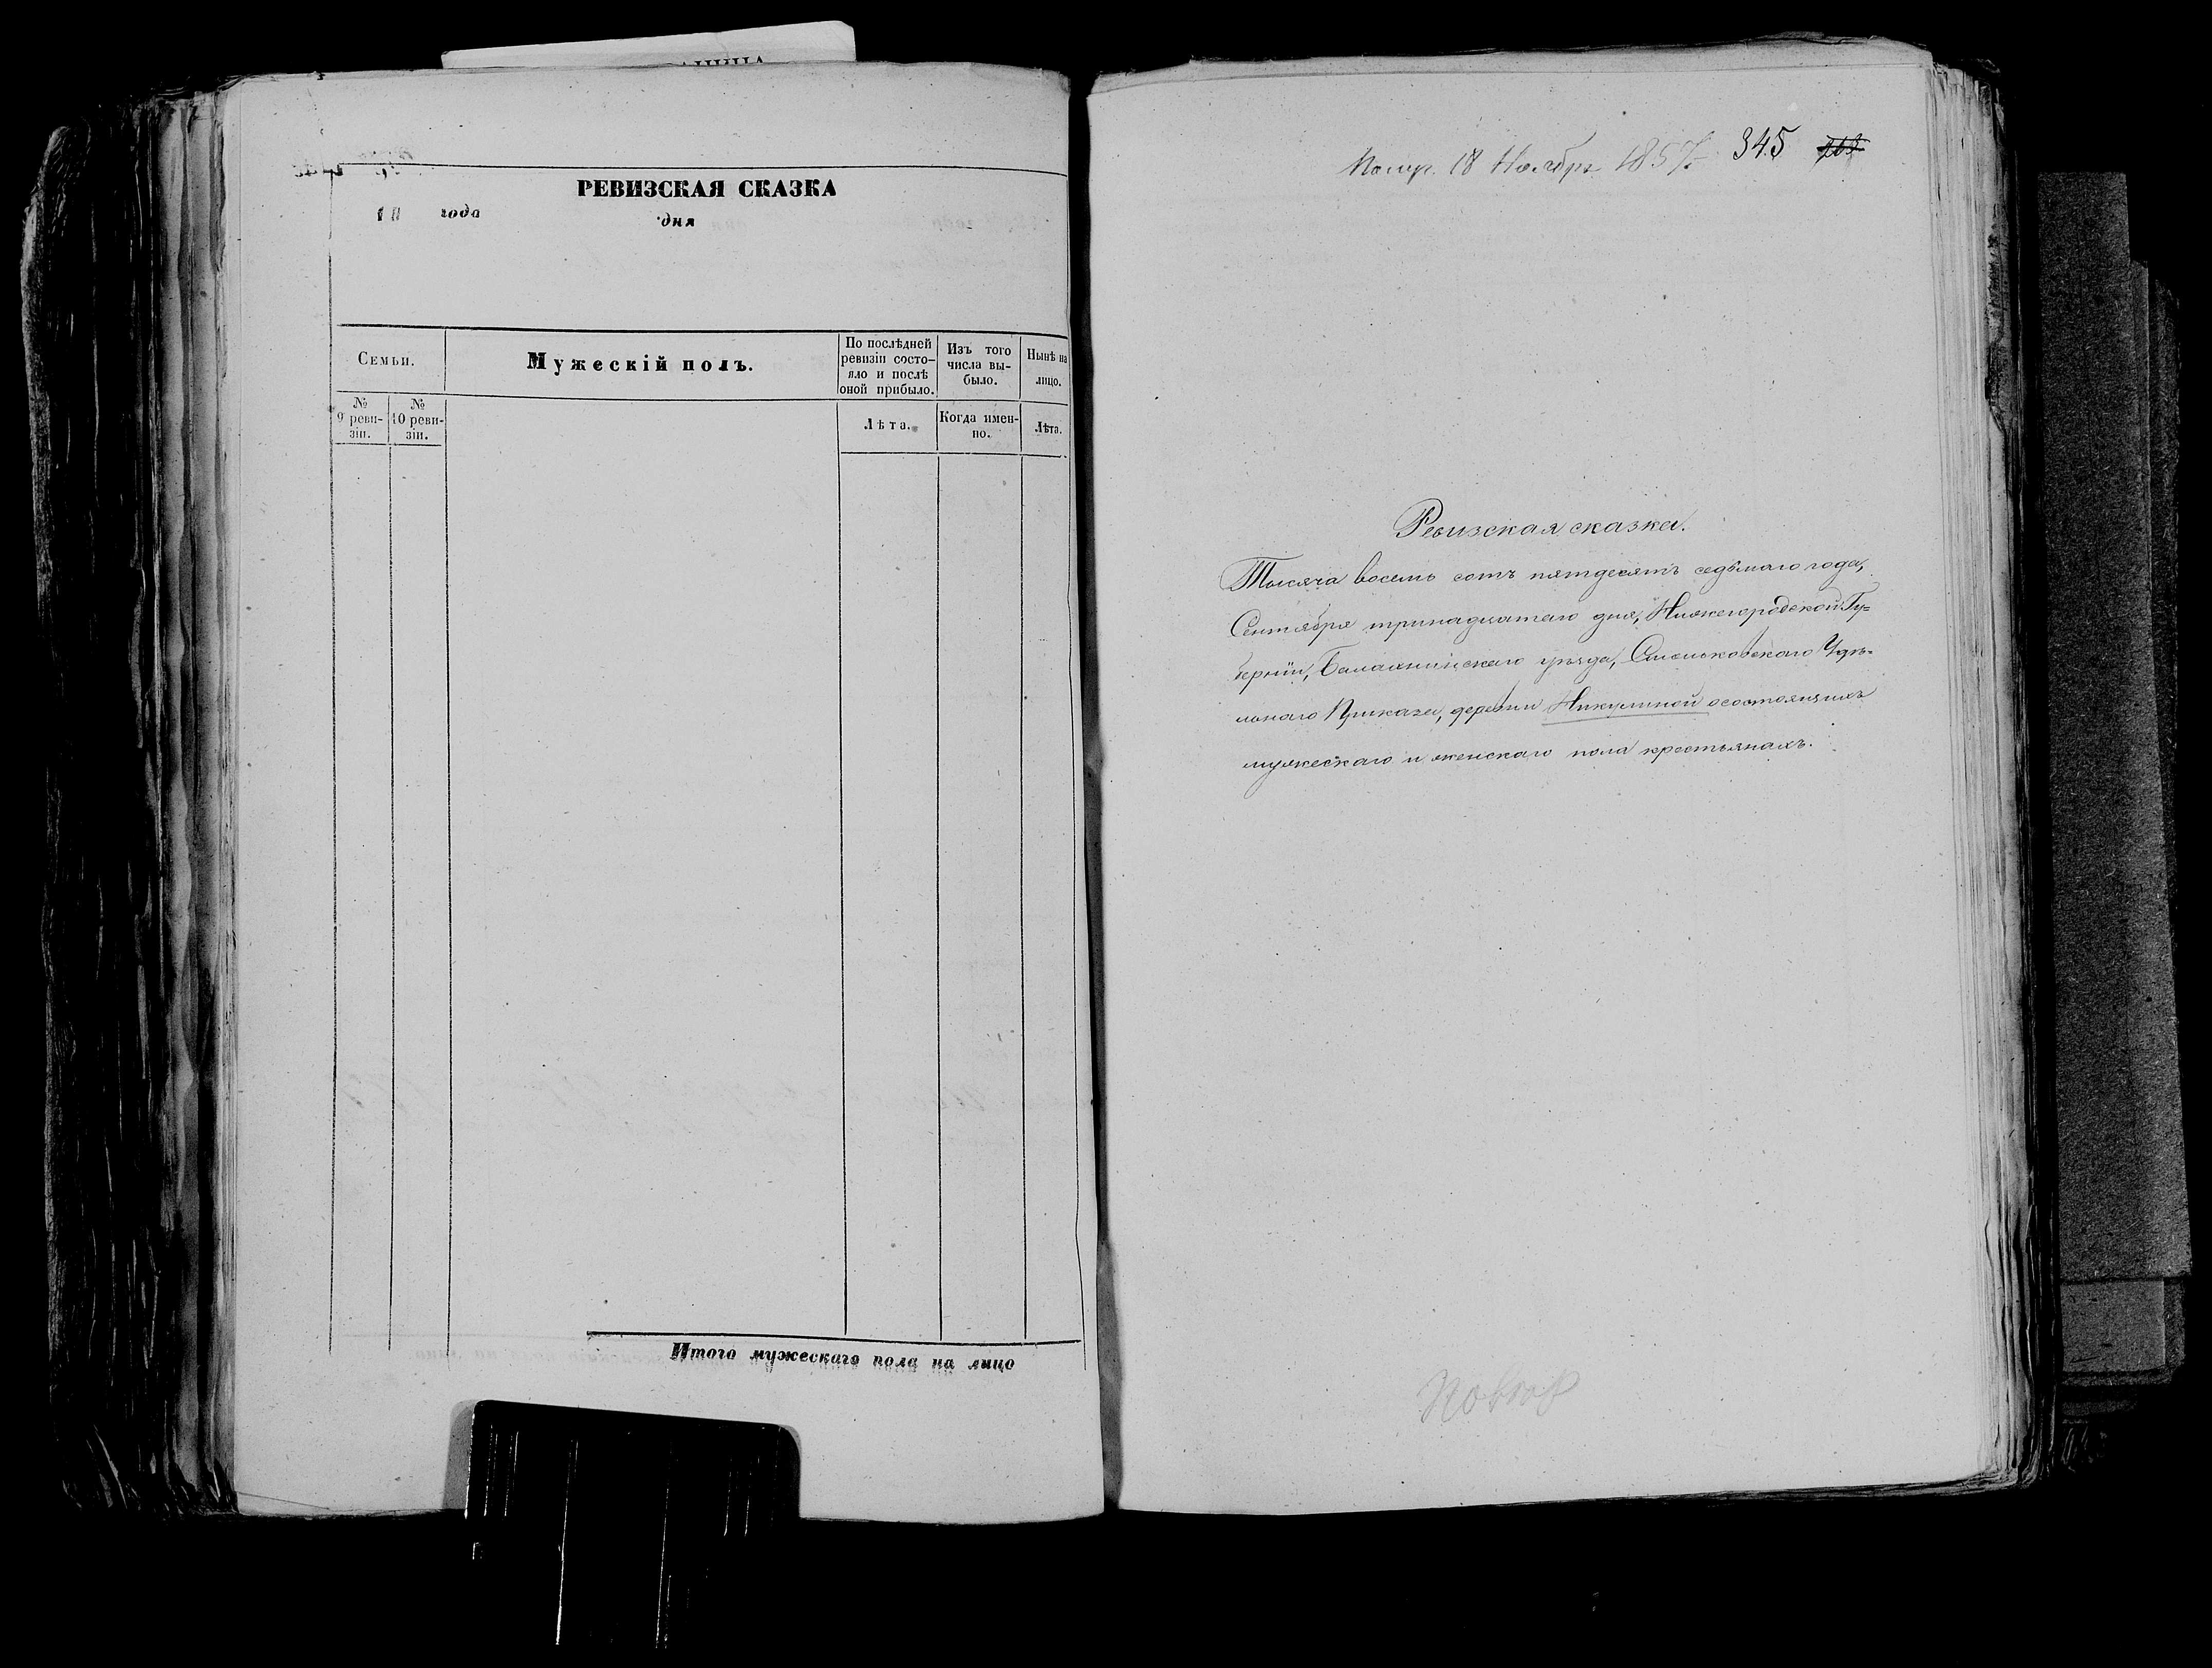 РЕВИЗСКАЯ СКАЗКА
18 года дня
Семьи.
Мужескій полъ.
По послѣдней
ревизіи состо-
яло и послѣ
оной прибыло.
Изъ того
числа вы-
было.
Нынѣ на
лицо.
№
9 реви-
зіи.
№
10 реви-
зіи.
Лѣта.
Когда имен-
но.
Лѣта.
Итого мужескаго пола на лицо
Получ. 18 Ноября 1857 345
Ревизская сказка.
Тысяча восемь сотъ пятдесятъ седьмаго года,
Сентября тринадцатаго дня, Нижегородской Гу=
берніи, Балахнинскаго уѣзда, Удѣ=
льнаго Приказа, деревни Никулиной о состоящихъ
мужескаго и женскаго пола крестьянахъ.
Повтор